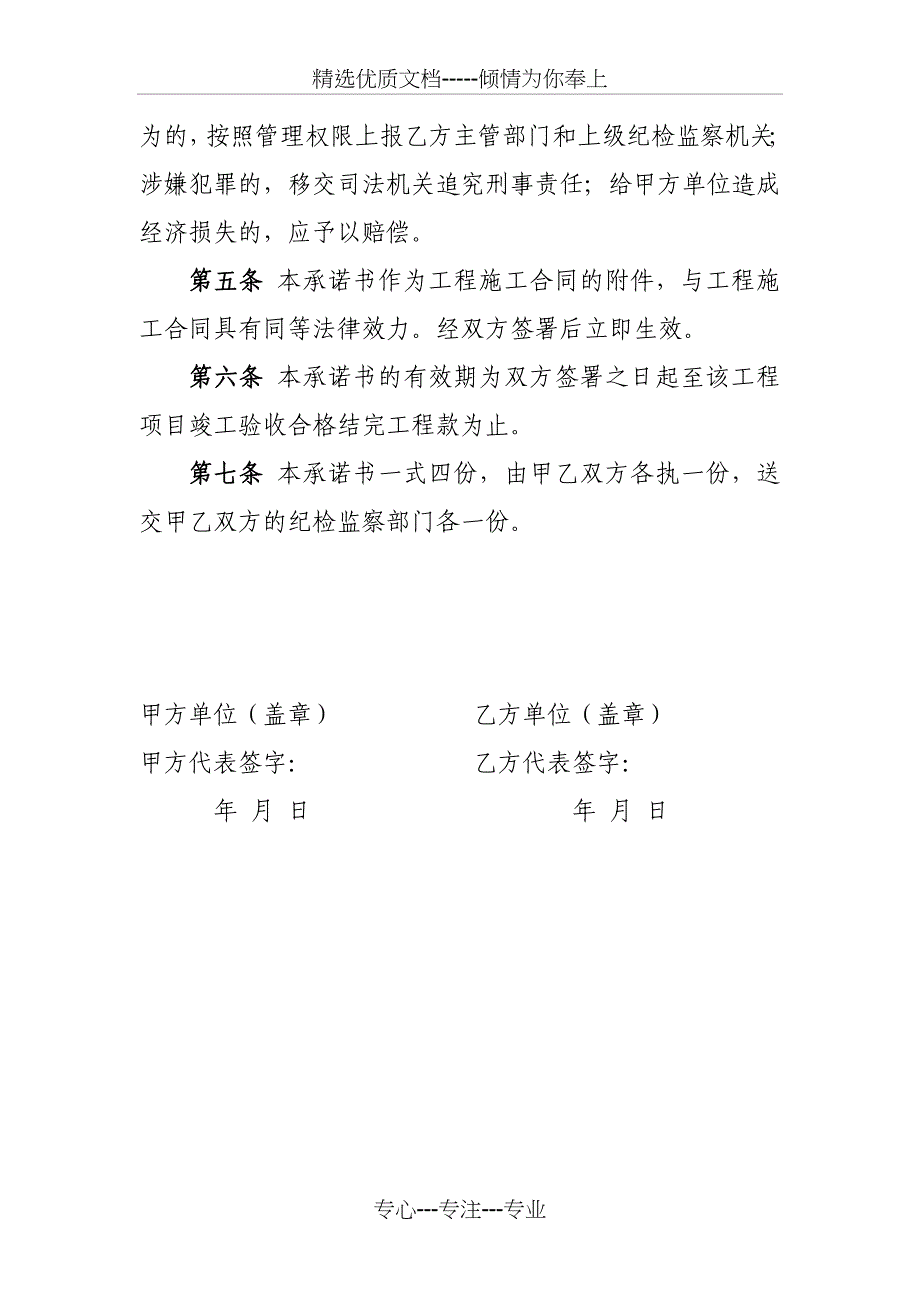 精选优质文档-----倾情为你奉上
为的，按照管理权限上报乙方主管部门和上级纪检监察机关；
涉嫌犯罪的，移交司法机关追究刑事责任；给甲方单位造成
经济损失的，应予以赔偿。
第五条 本承诺书作为工程施工合同的附件，与工程施
工合同具有同等法律效力。经双方签署后立即生效。
第六条 本承诺书的有效期为双方签署之日起至该工程
项目竣工验收合格结完工程款为止。
第七条 本承诺书一式四份，由甲乙双方各执一份，送
交甲乙双方的纪检监察部门各一份。
甲方单位（盖章） 乙方单位（盖章）
甲方代表签字： 乙方代表签字：
年 月 日 年 月 日
专心---专注---专业